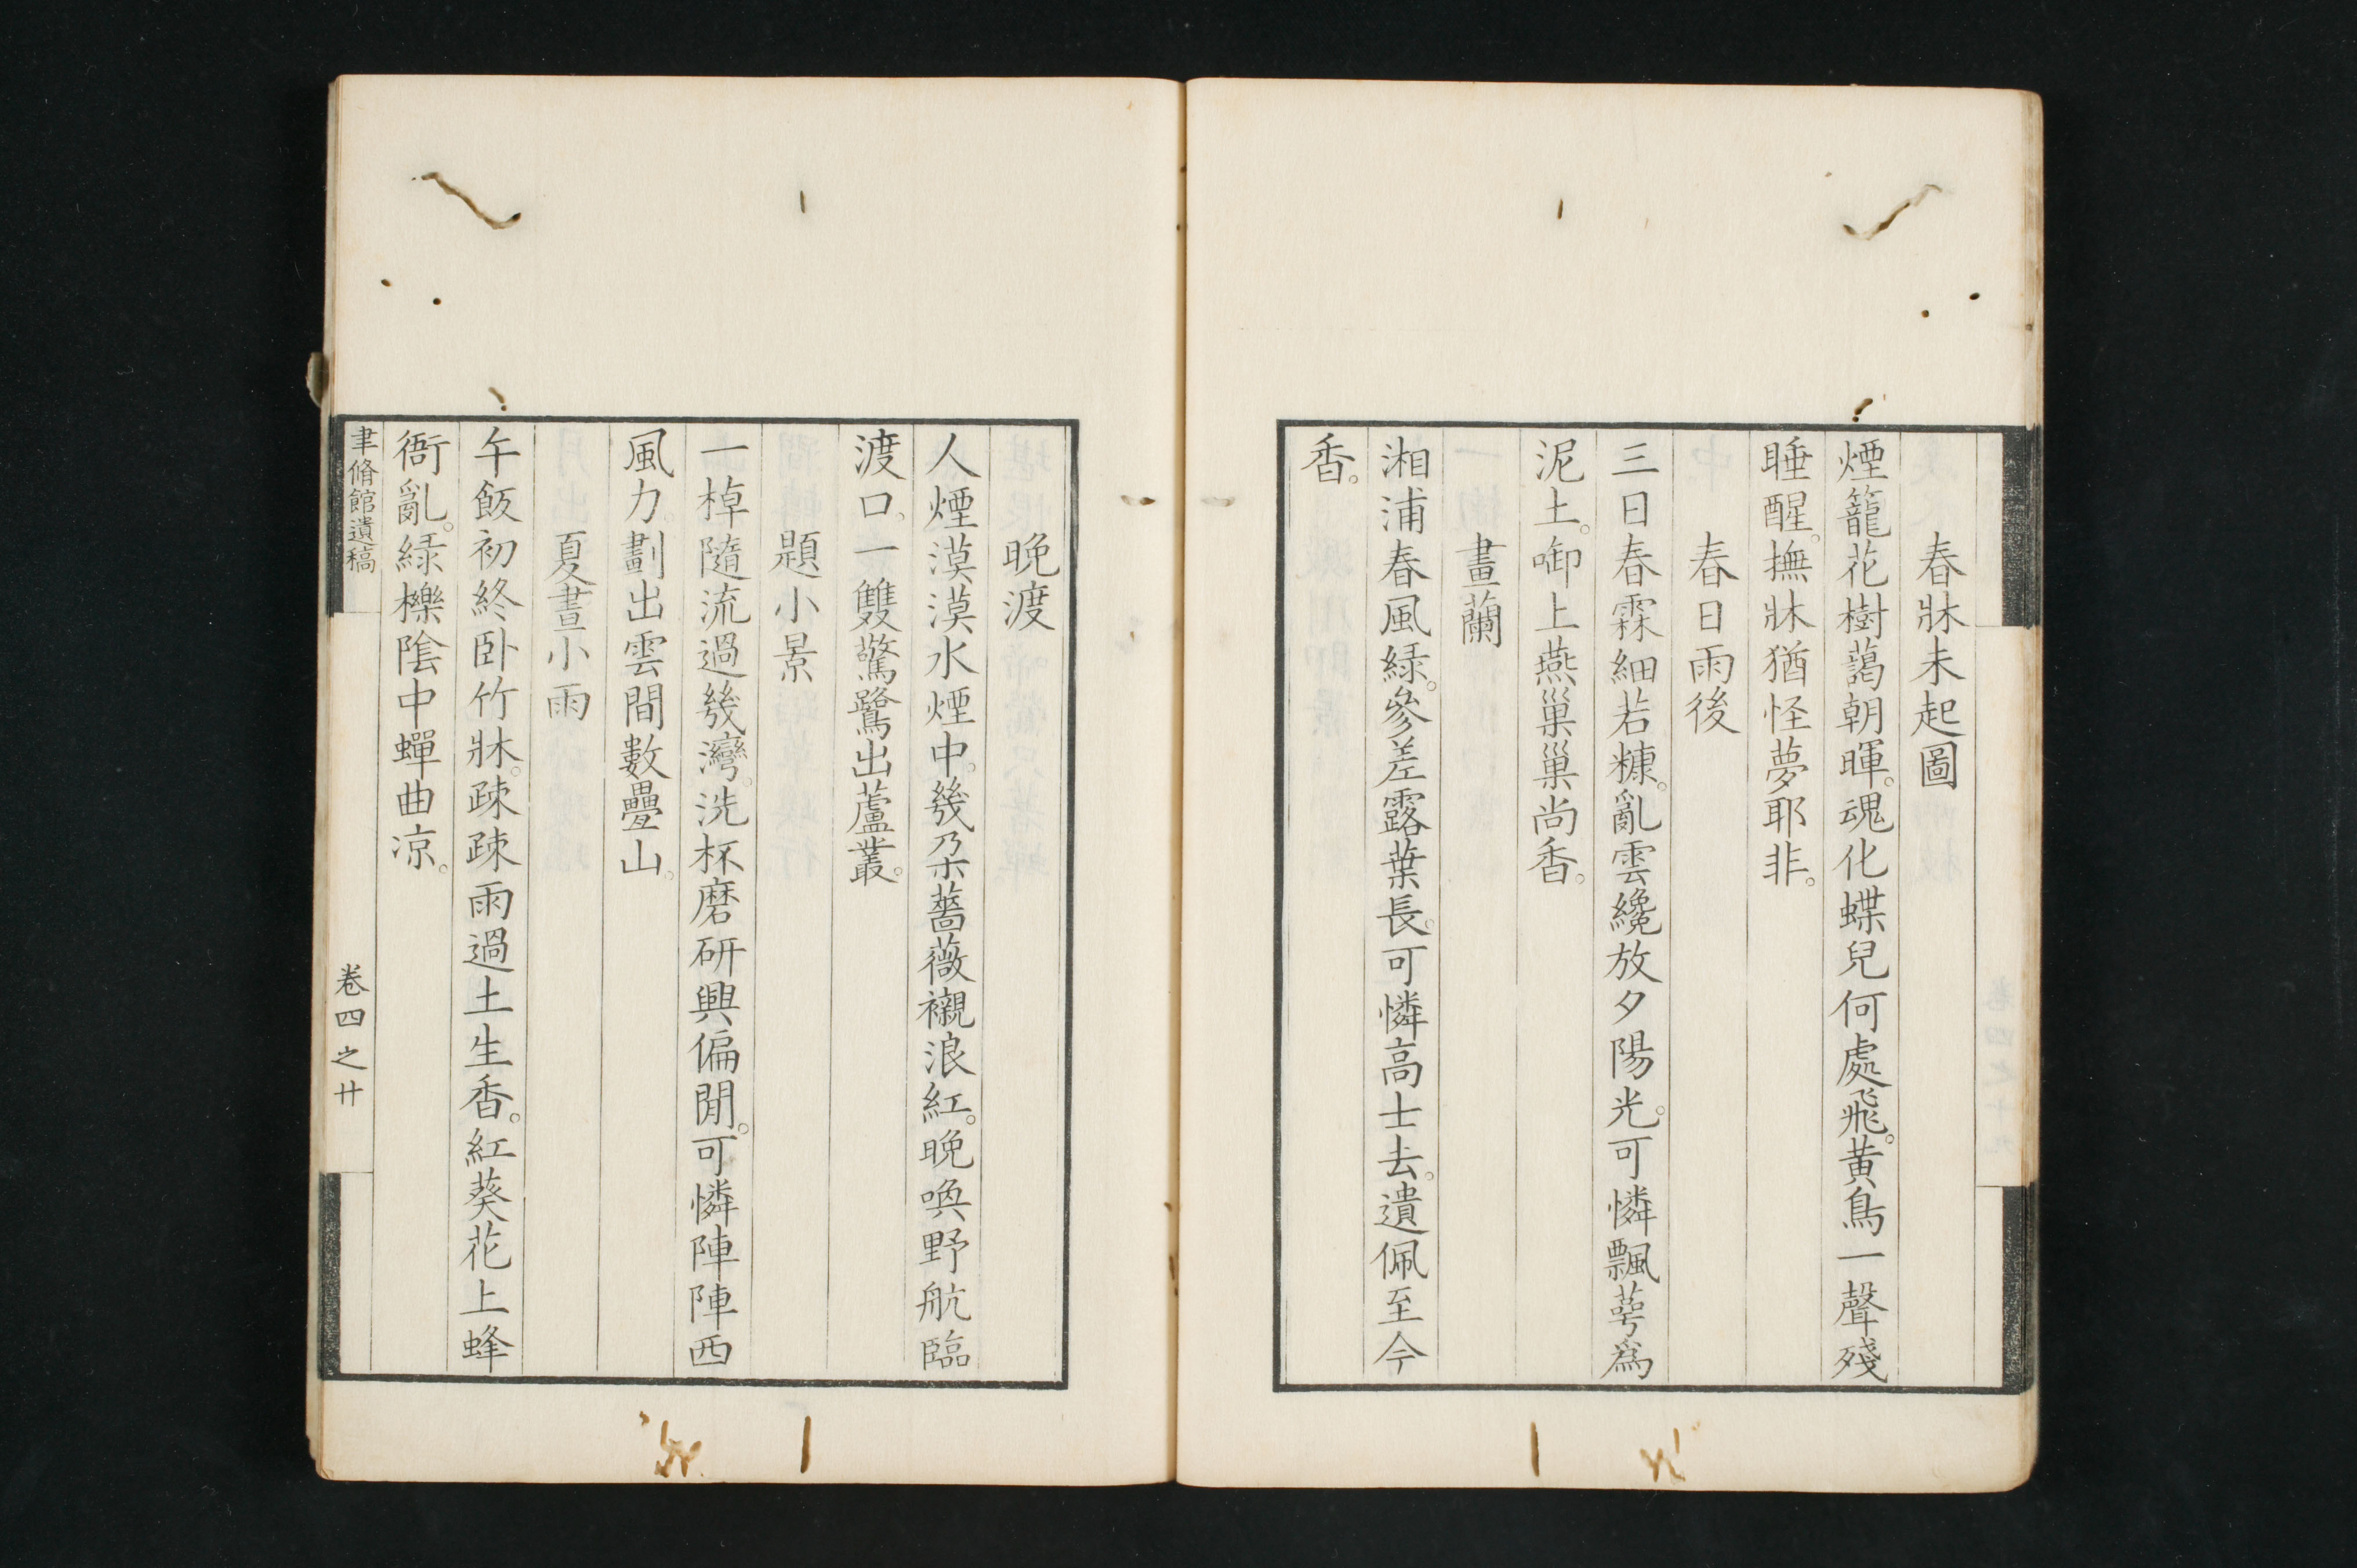 春牀未起圖
煙籠花樹藹朝暉。魂化蝶兒何處飛。黄鳥一聲殘
睡醒。撫牀猶怪夢耶非。
春日雨後
三日春霖細若糠。亂雲纔放夕陽光。可憐飄蕚爲
泥土。啣上燕巢巢尚香。
畫蘭
湘浦春風緑。參差露葉長。可憐高士去。遺佩至今
香。
晩渡
人煙漠漠水煙中。幾朶薔薇襯浪紅。晩喚野航臨
渡口。一雙驚鷺出蘆叢。
題小景
一棹隨流過幾灣。洗杯磨研興偏閒。可憐陣陣西
風力。劃出雲間數疊山。
夏晝小雨
午飯初終卧竹牀。疎疎雨過土生香。紅葵花上蜂
衙亂。緑櫟陰中蟬曲凉。
聿脩館遺稿
卷四之廿